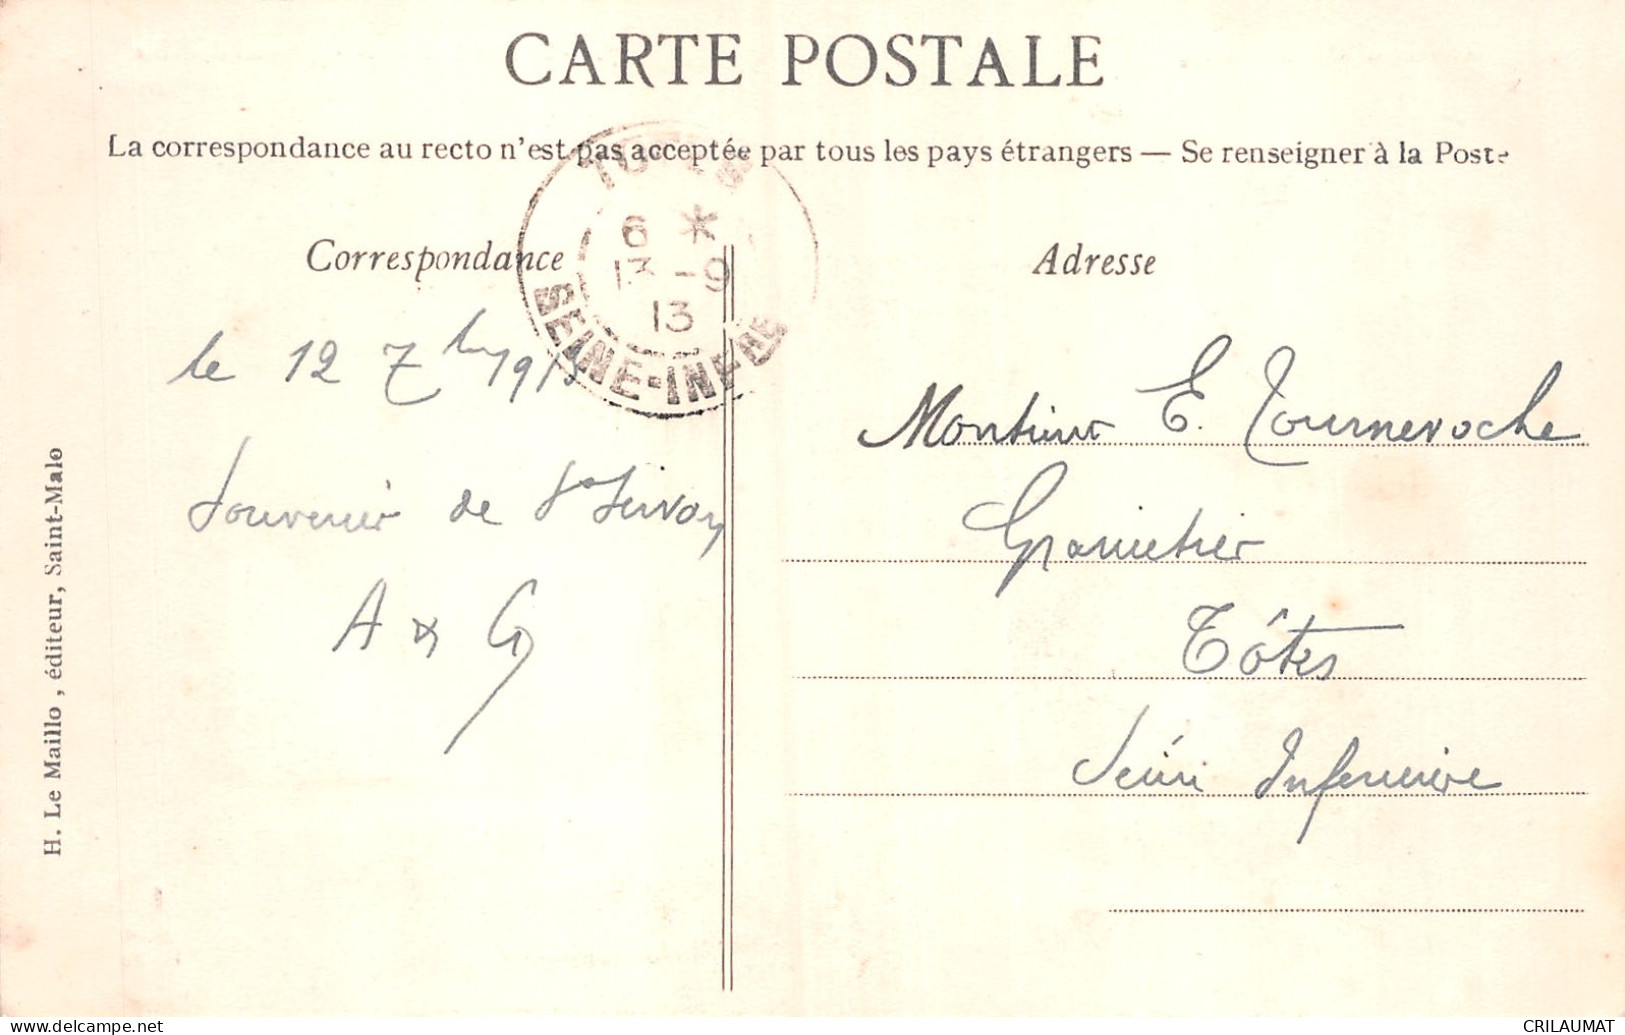 CARTE POSTALE
La correspondance au recto n'est pas acceptée par tous les pays étrangers — Se renseigner à la Poste
TOTES
6 *
13 -9
13
SEINE-INFRE
Correspondance
Adresse
le 12 7bre 1913
Souvenir de St Servan
A & G
Monsieur E. Tournevoche
Grainetier
Tôtes
Seine Inferieure
H. Le Maillo, éditeur, Saint-Malo
CRILAUMAT